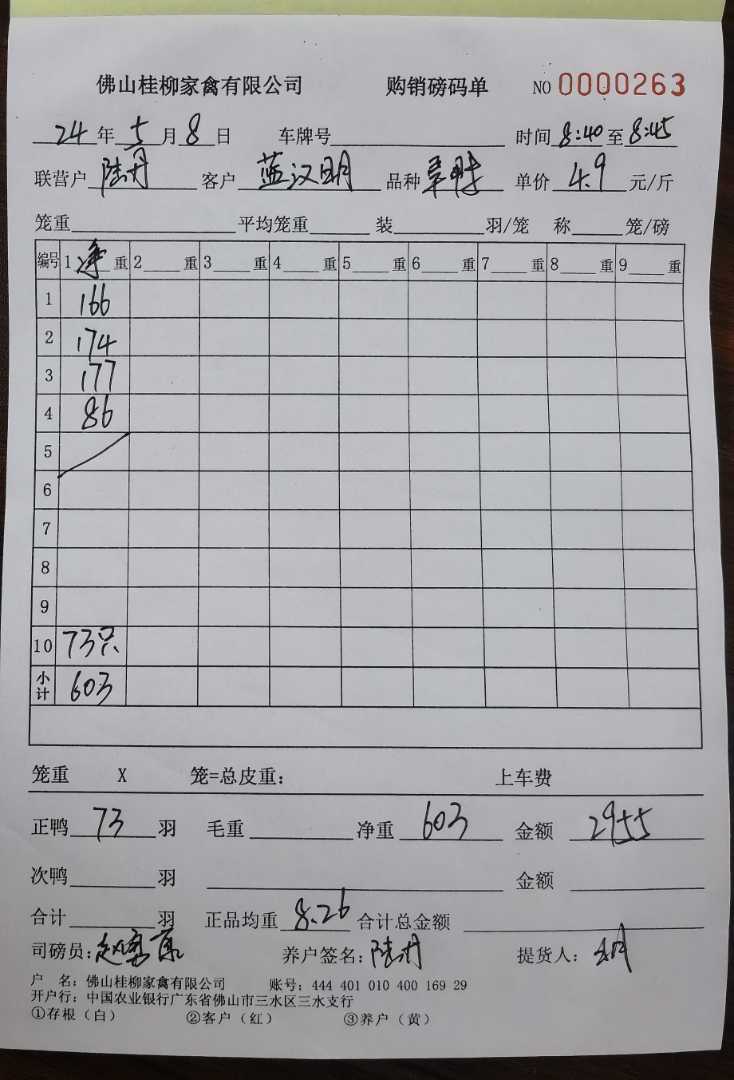 佛山桂柳家禽有限公司 购销磅码单 NO 0000263
24年5月8日 车牌号 时间8:40至8:45
联营户陆丹 客户蓝汉明 品种 单价4.9元/斤
笼重 平均笼重 装 羽/笼 称 笼/磅
编号 1净重 2 重 3 重 4 重 5 重 6 重 7 重 8 重 9 重
1 166
2 174
3 177
4 86
5
6
7
8
9
10 73只
小计 603
笼重 X 笼=总皮重: 上车费
正鸭73羽 毛重 净重603 金额2955
次鸭 羽 金额
合计 羽 正品均重8.26 合计总金额
司磅员: 养户签名:陆丹 提货人:
户 名:佛山桂柳家禽有限公司 账号:444 401 010 400 169 29
开户行:中国农业银行广东省佛山市三水区三水支行
①存根(白) ②客户(红) ③养户(黄)